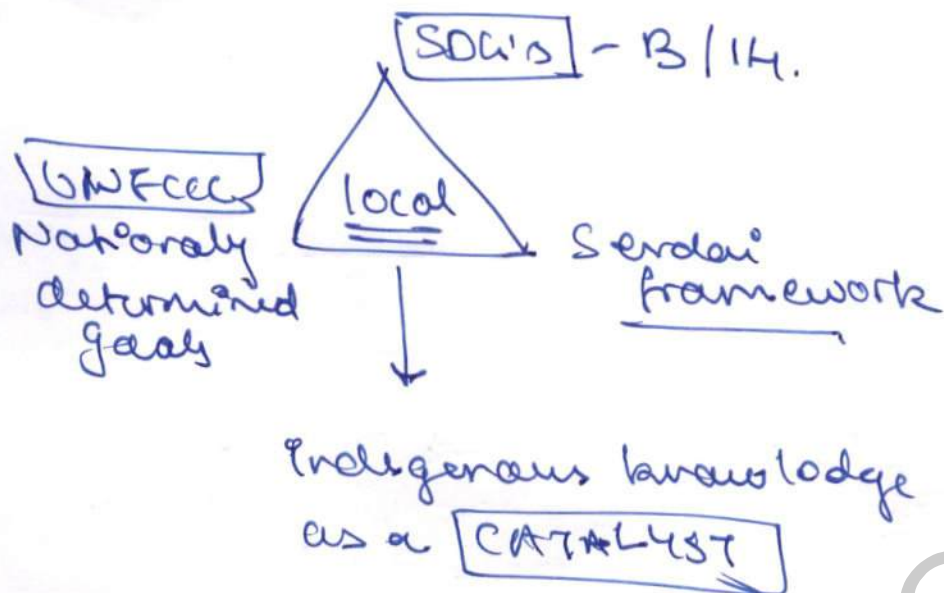 SDG's - 13/14.
UNFCCC
Nationaly
determined
goals
local
Sendai
framework
Indigenous knowledge
as a CATALYST